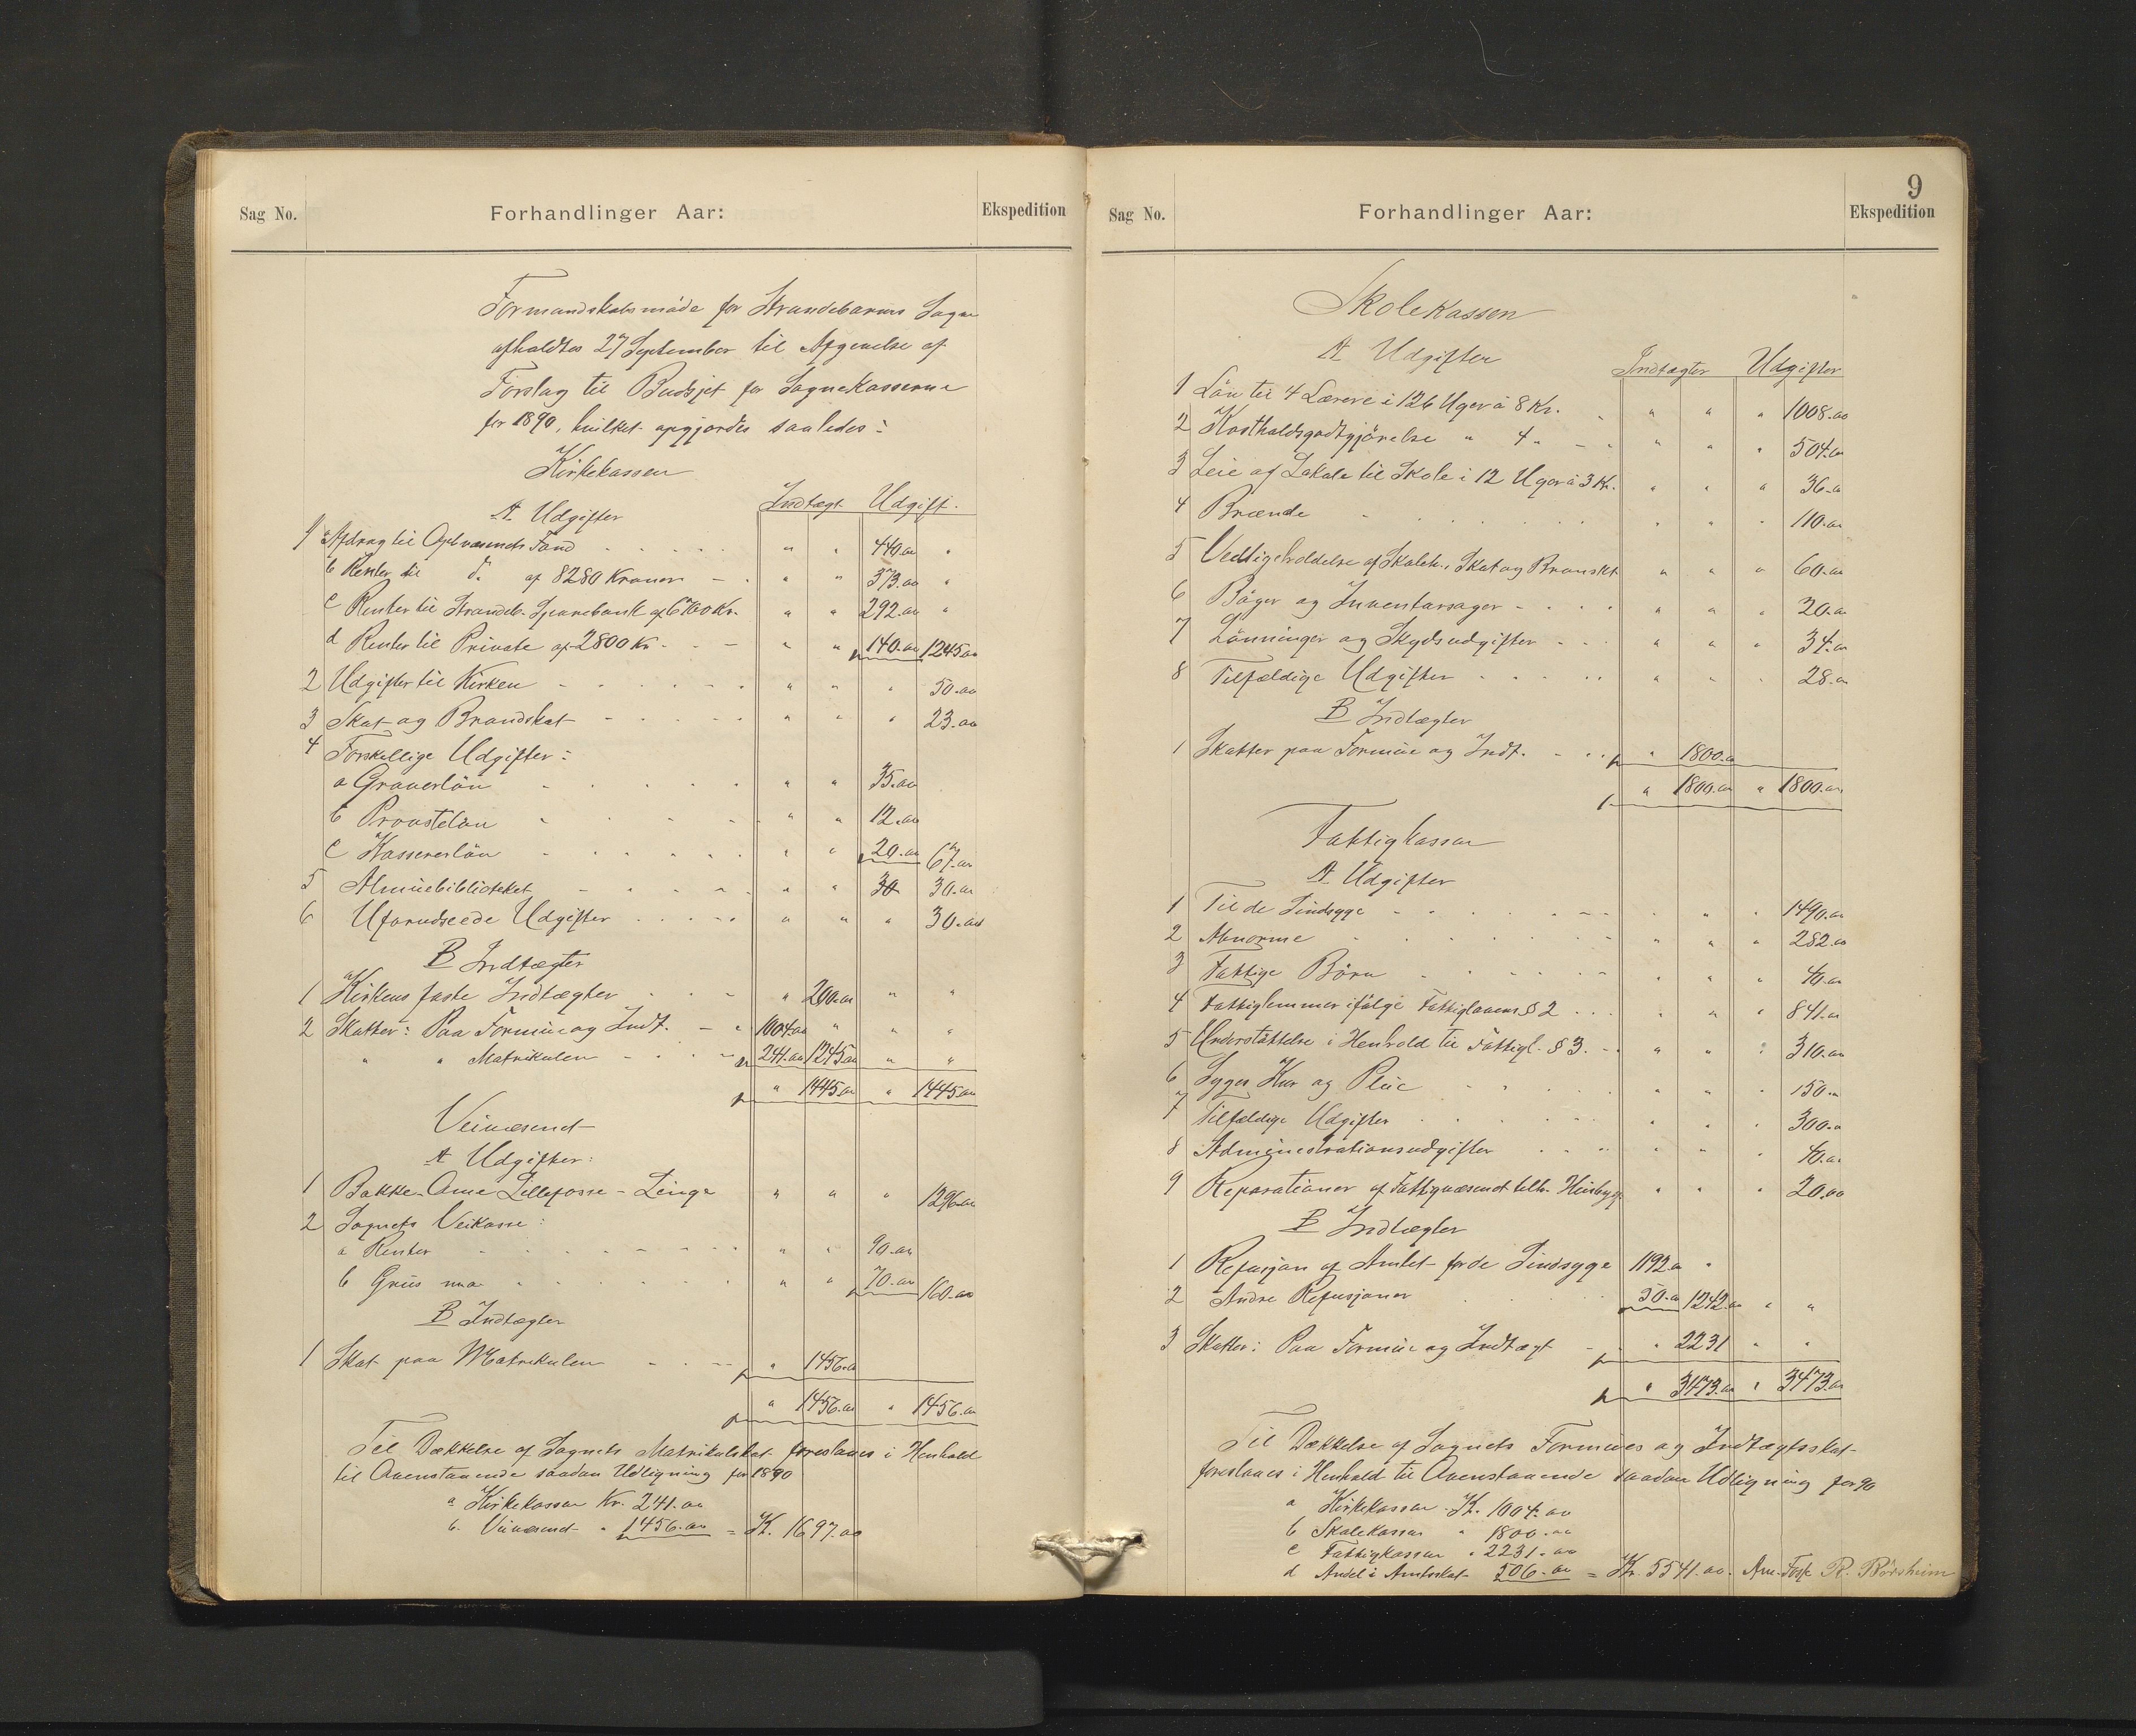 Sag No. Forhandlinger Aar: Ekspedition
Formandskabsmøde for Strandebarms Sogn
afholdtes 27 September til Afgivelse af
Forslag til Budsjet for Sognekasserne
for 1890, hvilket opgjordes saaledes:
Kirkekassen
A Udgifter Indtægt Udgift.
1 a Afdrag til Oplvæsenets Fond . . . . . " " 440.00 "
b Renter til do af 8280 Kroner - . " " 373.00 "
c Renter til Strandeb. Sparebank af 6700 Kr. " " 292.00 "
d Renter til Private af 2800 Kr. - - " " 140.00 1245.00
2 Udgifter til Kirken - - - - - - " " " 50.00
3 Skat og Brandskat - - - - - " " " 23.00
4 Forskellige Udgifter:
a Graverløn . . . . . " " 35.00
b Provsteløn - - - - . " " 12.00
c Kassererløn - - - - - " " 20.00 67.00
5 Almuebiblioteket - - - - - " " 30 30.00
6 Uforudseede Udgifter . . . . . " " " 30.00
B Indtægter
1 Kirkens faste Indtægter . . - " 200.00 " "
2 Skatter: Paa Formue og Indt. - " 1004.00 " " "
" " Matrikulen - . . - 241.00 1245.00 " "
" 1445.00 " 1445.00
Veivæsenet
A Udgifter:
1 Bakke-Ome Lillefosse - Linga " " " 1296.00
2 Sognets Veikasse:
a Renter - - - - - - - - " " 90.00
b Grus m.a. - . . . . . " " 70.00 160.00
B Indtægter
1 Skat paa Matrikulen - . - - " 1456.00
" 1456.00 " 1456.00
Til Dækkelse af Sognets Matrikulskat foreslaaes i Henhold
til Ovenstaaende saadan Udligning for 1890
a Kirkekassen Kr. 241.00
b. Veivæsenet " 1456.00 = Kr. 1697.00
9
Sag No. Forhandlinger Aar: Ekspedition
Skolekassen
A Udgifter Indtægter Udgifter
1 Løn til 4 Lærere i 126 Uger à 8 Kr. . " " " 1008.00
2 Kostholdsgodtgjørelse " 4 " - . " " " 504.00
3 Leie af Lokale til Skole i 12 Uger à 3 Kr. " " " 36.00
4 Brænde . . . . . . . " " " 110.00
5 Vedligeholdelse af Skoleh., Skat og Branskt " " " 60.00
6 Bøger og Inventarsager - . . . " " " 20.00
7 Lønninger og Skydsudgifter - - . " " " 34.00
8 Tilfældige Udgifter . . . . . " " " 28.00
B Indtægter
1 Skatter paa Formue og Indt. - . . " 1800.00
" 1800.00 " 1800.00
Fattigkassen
A Udgifter
1 Til de Sindsyge - - . . . - - . " " 1490.00
2 Abnorme . . . . . . - " " " 282.00
3 Fattige Børn . . - - - - . " " 40.00
4 Fattiglemmer ifølge Fattiglovens § 2 . . . " " " 841.00
5 Understøttelse i Henhold til Fattigl. § 3. - . " " " 310.00
6 Syges Kur og Pleie - . . . " " " 150.00
7 Tilfældige Udgifter . . . . . " " " 300.00
8 Administrationsudgifter . . . " " " 40.00
9 Reparationer af Fattigvæsenet tilh. Husbygn " " " 20.00
B Indtægter
1 Refusjon af Amtet for de Sindsyge 1192.00 "
2 Andre Refusjoner . . . 50.00 1242.00 " "
3 Skatter: Paa Formue og Indtægt - " 2231 " "
" 3473.00 " 3473.00
Til Dækkelse af Sognets Formues og Indtægtsskat
foreslaaes i Henhold til Ovenstaaende saadan Udligning for 90
a Kirkekassen Kr. 1004.00
b Skolekassen " 1800.00
c Fattigkassen " 2231.00
d Andel i Amtsskat 506.00 = Kr. 5541.00. Ane. Fosse R. Børsheim